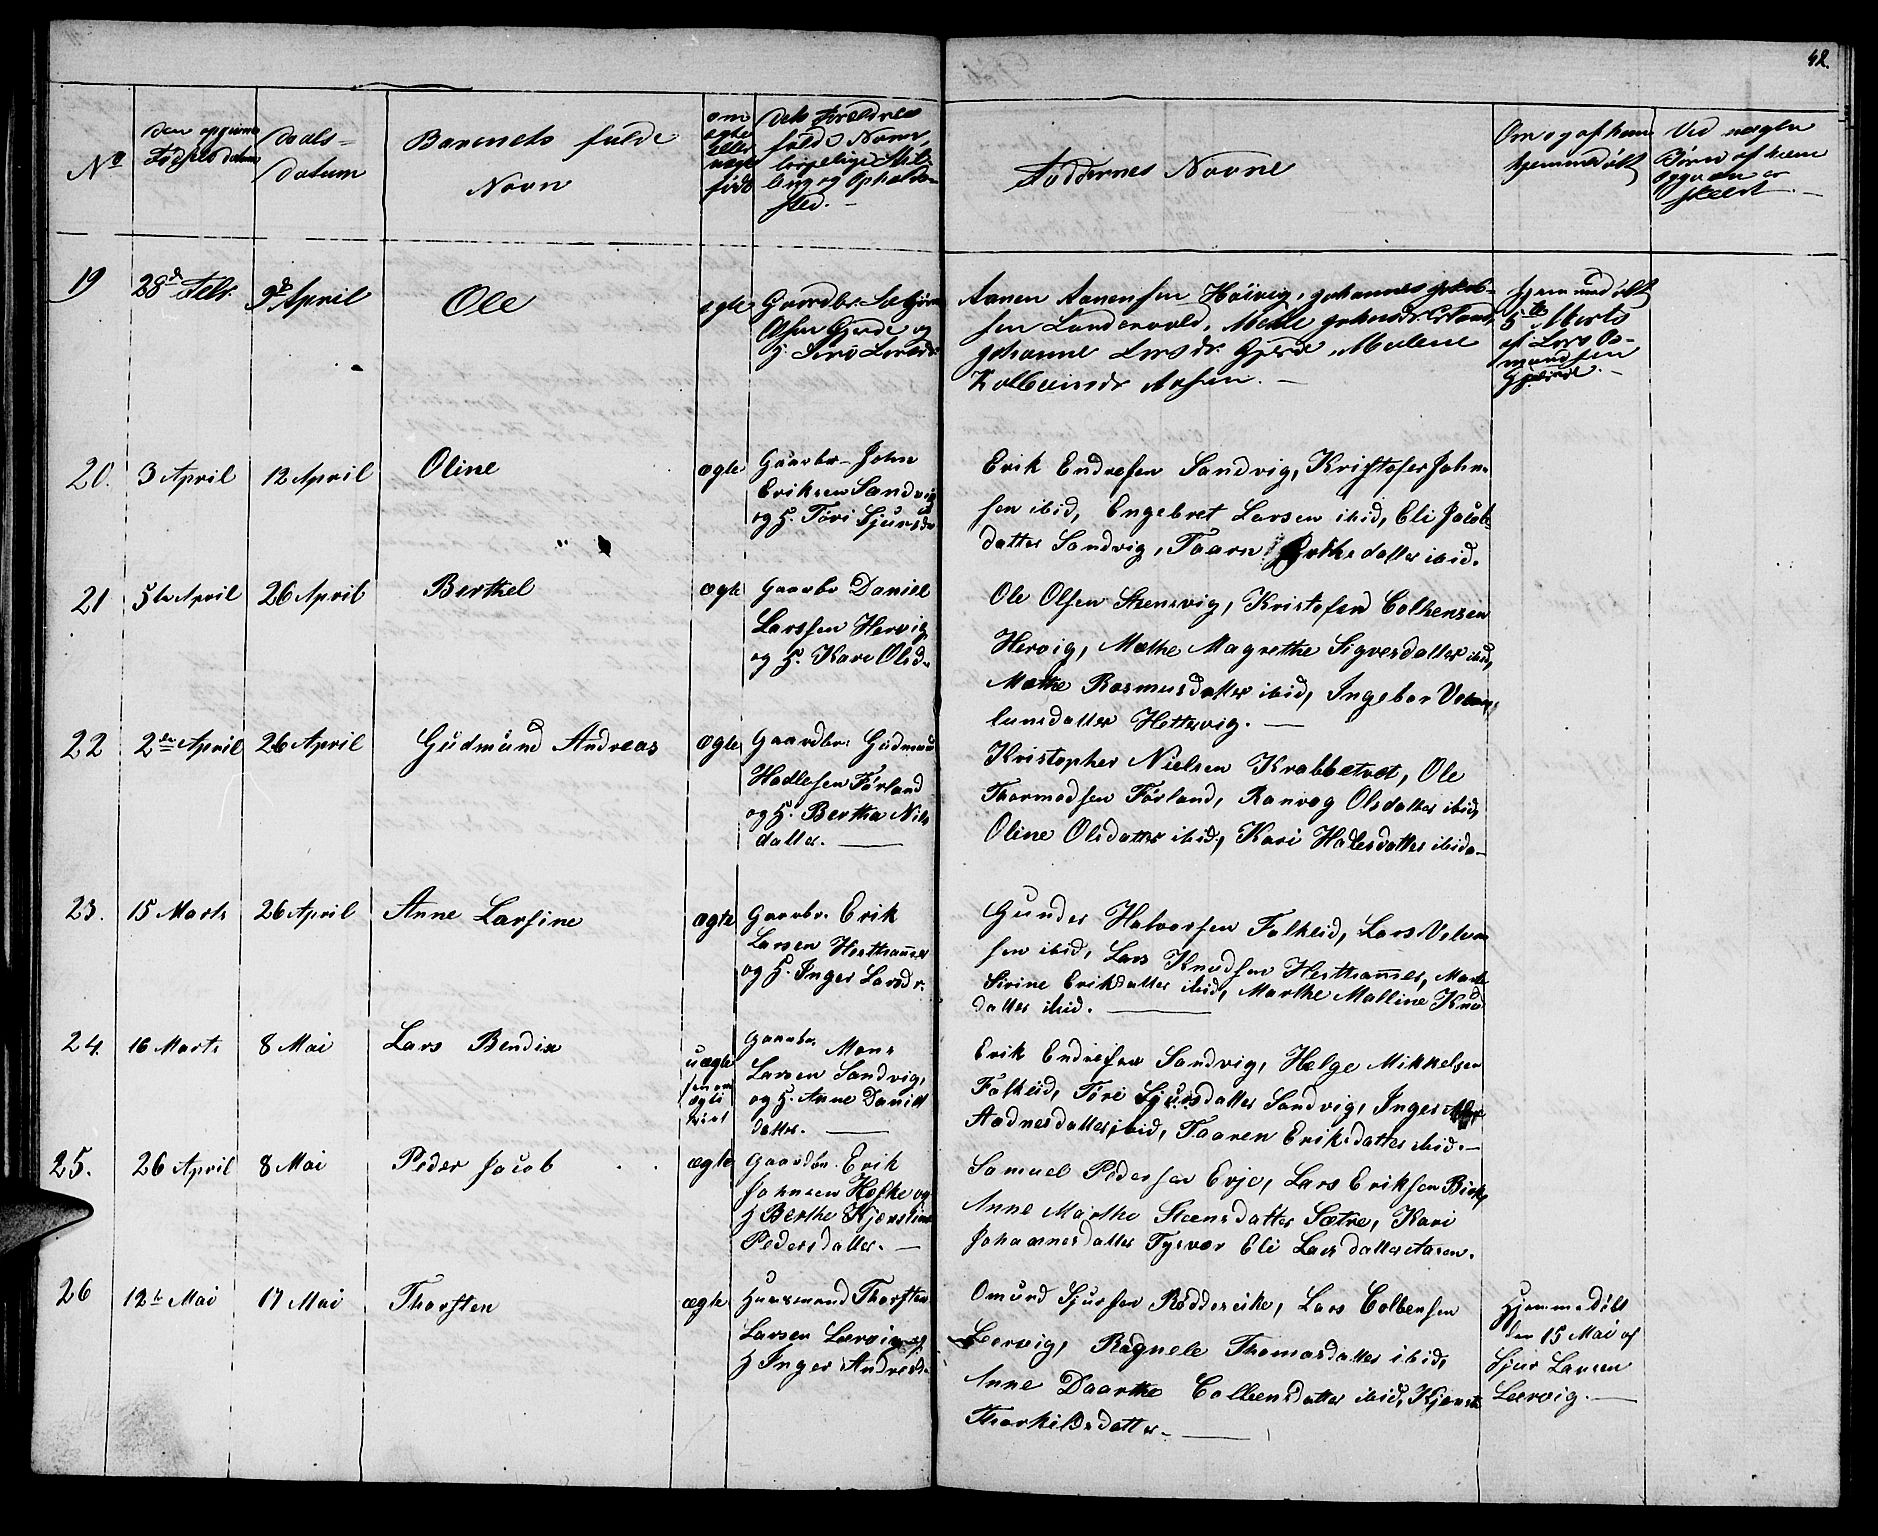 42.
No
den opgivne Fødsels datum
Daabs-
datum
Barnets fulde
Navn
om
ægte
eller
uægte
født
dets Forældres
fulde Navn,
borgelige Stil-
ling og Opholds-
sted. -
Faddernes Navne
Om og af hvem
hjemmedøbt
Ved nogle
Børn af hvem
Opgaven er
skeet. -
19
28de Febr.
9de April
Ole
egte
Gaardbr.
Olsen Gjerde og
H. Siri Larsdr
Aanen Aanensen Høivig, Johannes Jakob-
sen Landervold,
Johanne Larsdr. Gjerde, Malene
Kolbeinsdr Aasen. -
hjemmedøbt
5te Marts
af Lars Os-
mundsen
Gjerde. -
20.
3 April
12 April
Oline
ægte
Gaardbr. John
Eriksen Sandvig
og H. Tøri Sjursdr
Erik Endresen Sandvig, Kristofer John-
sen ibid, Engebret Larsen ibid, Eli Jacobs-
datter Sandvig, Taaren datter ibid.
21
5te April
26 April
Berthel
ægte
Gaardbr Daniel
Larssen Hervig
og H. Kari Olsd.
Ole Olsen Stensvig, Kristofend Colbensen
Hervig, Mathe Magrethe Sigversdatter ibid,
Mathe Rasmusdatter ibid, Ingebor Velom-
lunsdatter Hettervig. -
22
2den April
26 April
Gudmund Andreas
ægte
Gaardbr. Gudmun
Hadlesen Førland
og H. Bertha Nils
datter. -
Kristopher Nielsen Krabbetvet, Ole
Thormodsen Førland, Ranvog Olsdatter ibid,
Oline Olsdatter ibid, Kari Hadlesdatter ibid.
23.
15 Marts
26 April
Anne Larsine
ægte
Gaardbr. Erik
Larsen Hesthammer
og H. Inger Larsdr.
Gunder Halvorsen Falkeid, Lars Velom
sen ibid, Lars Knudsen Hesthammer, Marte
Sirine Eriksdatter ibid, Marthe Malline Knud
datter ibid. -
24.
16 Marts
8 Mai
Lars Bendix
uægte
Gaardbr. Mons
Larsen Sandvig,
og H. Anne Daniels
datter. -
Erik Endresen Sandvig, Helge Mikkelsen
Falkeid, Tøri Sjursdatter Sandvig, Inger
Aadnesdatter ibid, Taaren Eriksdatter ibid. -
25.
26 April
8 Mai
Peder Jacob
ægte
Gaardbr. Erik
Johnsen Hæske og
H Berthe Kjerstine
Pedersdatter. -
Samuel Pedersen Erje, Lars Eriksen Birk,
Anne Marthe Steensdatter Sætre, Kari
Johannesdatter Tysvær Eli Larsdatter Aasen.
26
12te Mai
17 Mai
Thorsten
ægte
Huusmand Thorsten
Larsen Lervig og
H Inger Andreasd.
Omund Sjursen Røddereike, Lars Colbensen
Lervig, Ragnele Thomasdatter ibid,
Anne Daarthe Colbensdatter ibid, Kjersti
Thorkildsdatter. -
Hjemmedøbt
den 15 Mai af
Sjur Larsen
Lervig. -